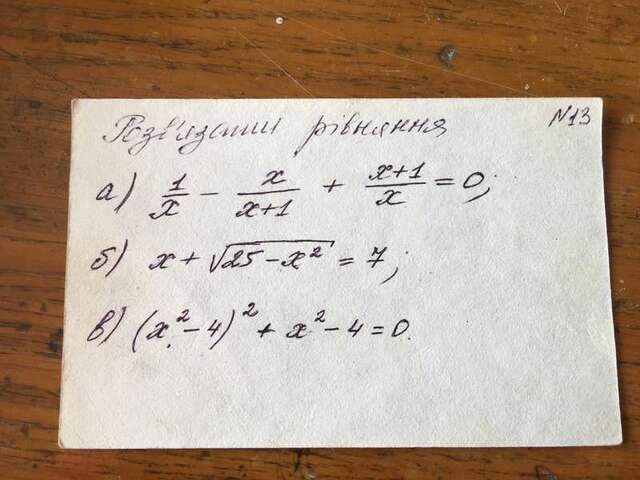 Розв'язати рівняння N13
а) 1/x - x/(x+1) + (x+1)/x = 0;
б) x + √(25-x²) = 7;
в) (x²-4)² + x²-4=0.